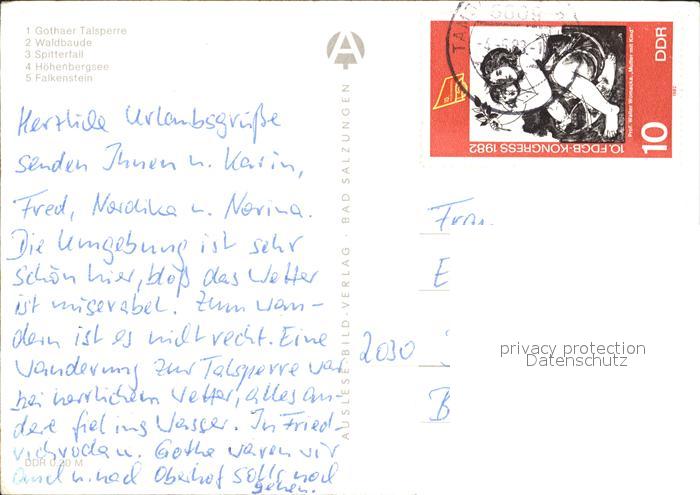 1 Gothaer Talsperre
2 Waldbaude
3 Spitterfall
4 Höhenbergsee
5 Falkenstein
Herzliche Urlaubsgrüße
senden Ihnen u. Karin,
Fred, Nordika u. Norina.
Die Umgebung ist sehr
schön hier, bloß das Wetter
ist miserabel. Zum wan-
dern ist es nicht recht. Eine
Wanderung zur Talsperre war
bei herrlichem Wetter, alles an-
dere fiel ins Wasser. In Fried-
richroda u. Gotha waren wir
auch u. nach Oberhof solls noch
gehen.
DDR 0,20 M
AUSLESE-BILD-VERLAG · BAD SALZUNGEN
A
10. FDGB-KONGRESS 1982
Prof. Walter Womacka: „Mutter mit Kind"
DDR
10
1982
Frau
E
2030
B
privacy protection
Datenschutz